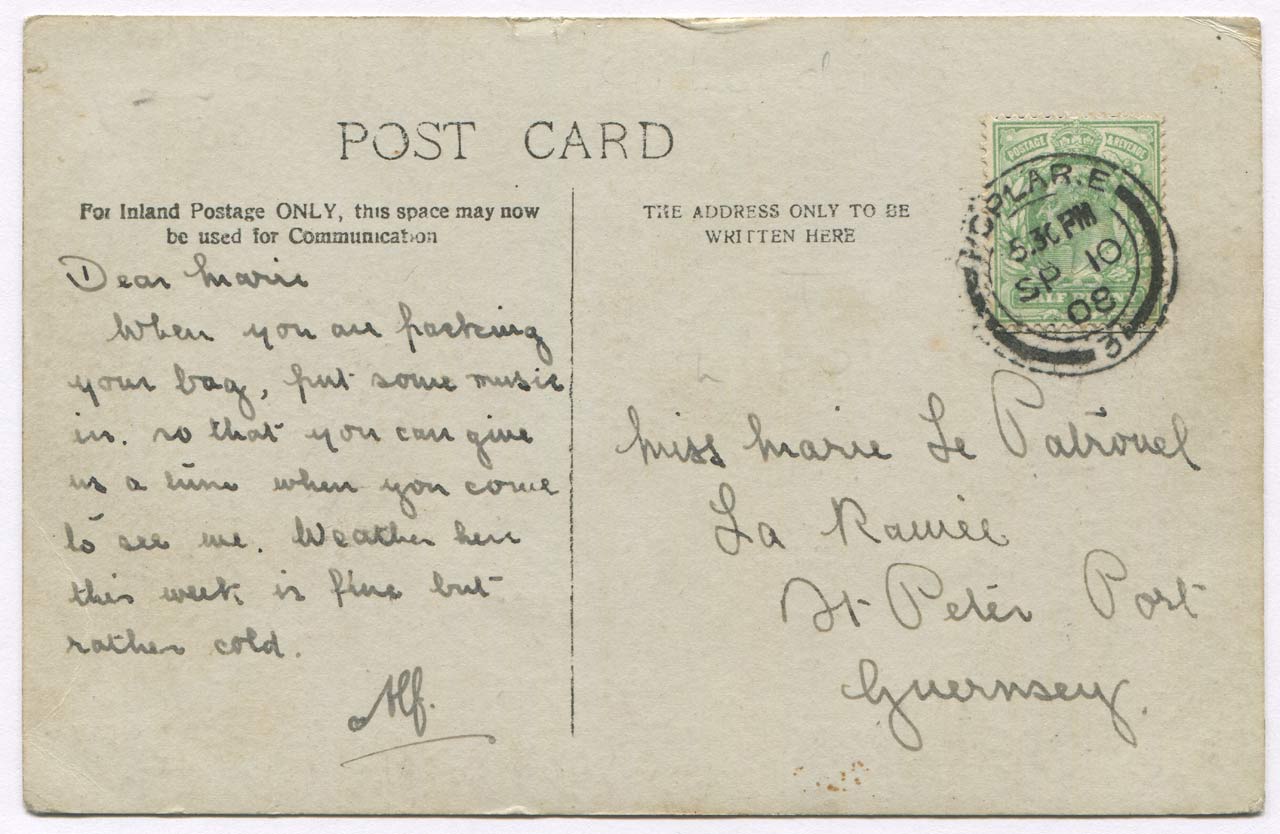 POST CARD
For Inland Postage ONLY, this space may now
be used for Communication
THE ADDRESS ONLY TO BE
WRITTEN HERE
POSTAGE & REVENUE
POPLAR. E
5.30 PM
SP 10
08
3
Dear Marie
When you are packing
your bag, put some music
in. so that you can give
us a tune when you come
to see me. Weather here
this week is fine but
rather cold.
Alf.
Miss Marie Le Patrouel
La Ramée
St Peter Port
Guernsey.